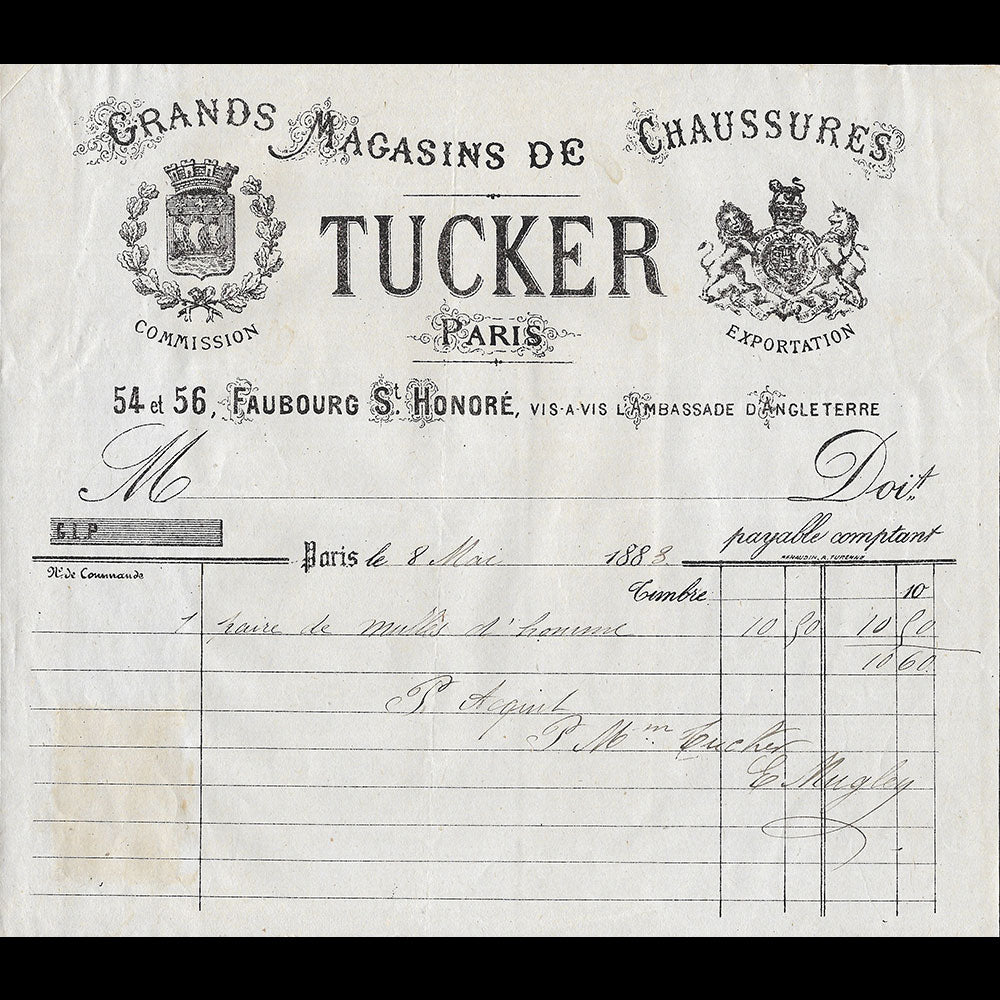 GRANDS MAGASINS DE CHAUSSURES
TUCKER
PARIS
COMMISSION
EXPORTATION
54 et 56, FAUBOURG St. HONORÉ, VIS-A-VIS L'AMBASSADE D'ANGLETERRE
M Doit
G.I.P payable comptant
Paris le 8 Mai 1883
No. de Commande
Timbre 10
1 paire de mules d'homme 10 50 10 50
10 60
Pr Acquit
P Mm Tucker
E Mugley